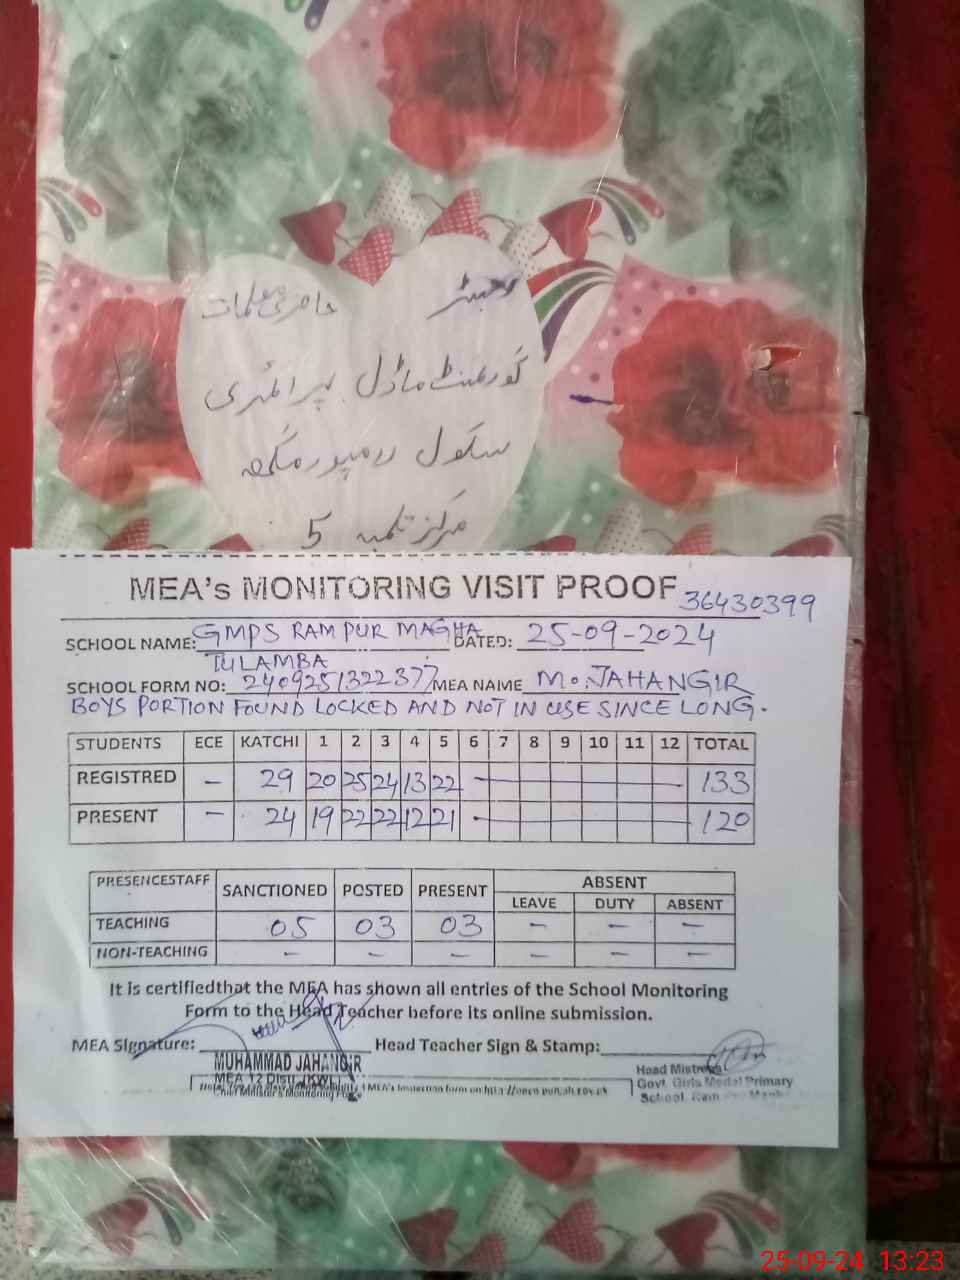 رجسٹر حاضری معلمات
گورنمنٹ ماڈل پرائمری
سکول رامپور مگھہ
مرکز تلمبہ 5
MEA's MONITORING VISIT PROOF 36430399
SCHOOL NAME: GMPS RAMPUR MAGHA DATED: 25-09-2024
TULAMBA
SCHOOL FORM NO: 2409251322377 MEA NAME Mo. JAHANGIR
BOYS PORTION FOUND LOCKED AND NOT IN USE SINCE LONG.
STUDENTS ECE KATCHI 1 2 3 4 5 6 7 8 9 10 11 12 TOTAL
REGISTRED - 29 20 25 24 13 22 - 133
PRESENT - 24 19 22 22 12 21 - 120
PRESENCESTAFF SANCTIONED POSTED PRESENT ABSENT
LEAVE DUTY ABSENT
TEACHING 05 03 03 - - -
NON-TEACHING - - - - - -
It is certifiedthat the MEA has shown all entries of the School Monitoring
Form to the Head Teacher before its online submission.
MEA Signature: Head Teacher Sign & Stamp:
MUHAMMAD JAHANGIR
MEA 12 Distt (KWL)
Chief Minister's Monitoring Force
Head Mistress
Govt. Girls Model Primary
School, Ram
25-09-24 13:23